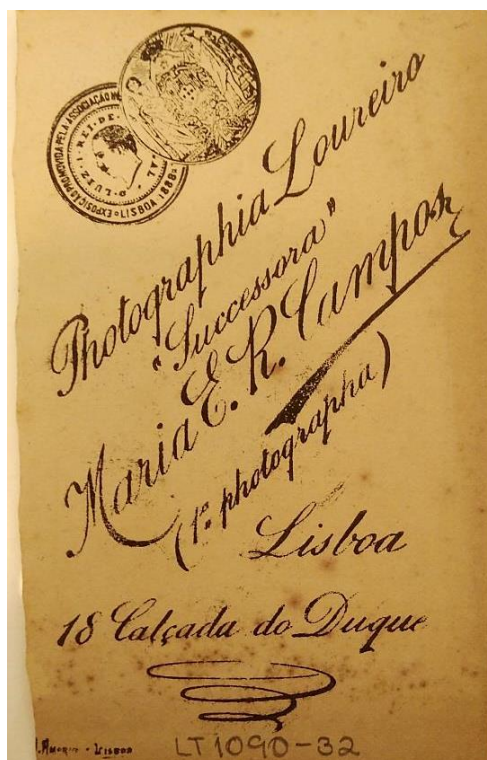 EXPOSIÇÃO PROMOVIDA PELA ASSOCIAÇÃO
LISBOA 1888
D. LUIZ I. REI DE
Photographia Loureiro
"Successora"
Maria E. R. Campos
(1ª photographa)
Lisboa
18 Calçada do Duque
LISBOA
LT1090-32